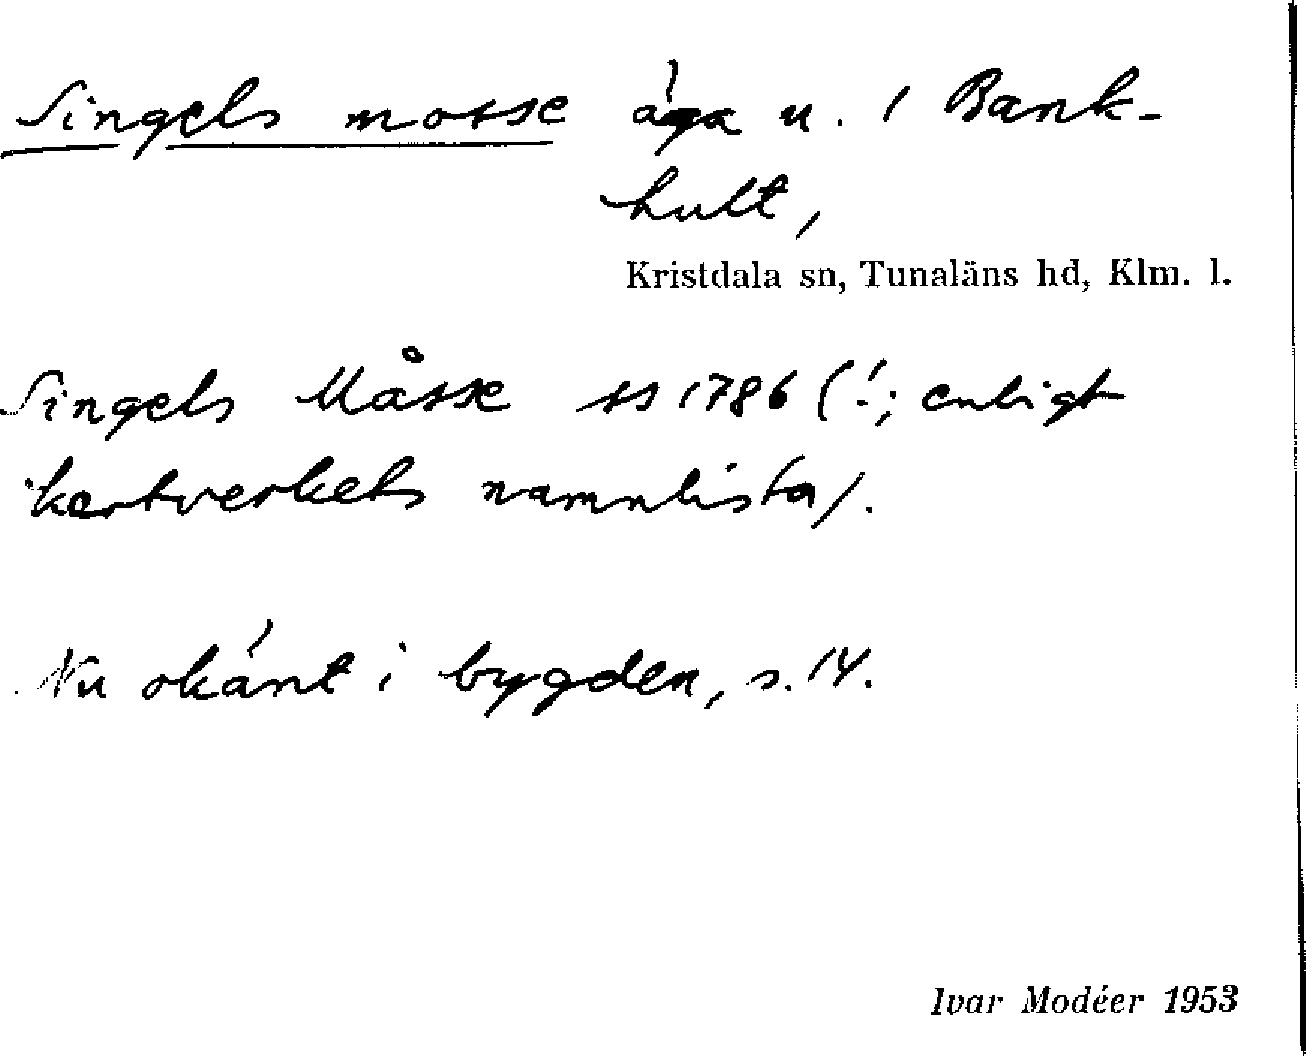 Singels mosse äga u. i Bank-
hult,
Kristdala sn, Tunaläns hd, Klm. l.
Singels Måsse ss 1786 (!; enligt
kartverkets namnlista).
Nu okänt i bygden, s. 14.
Ivar Modéer 1953